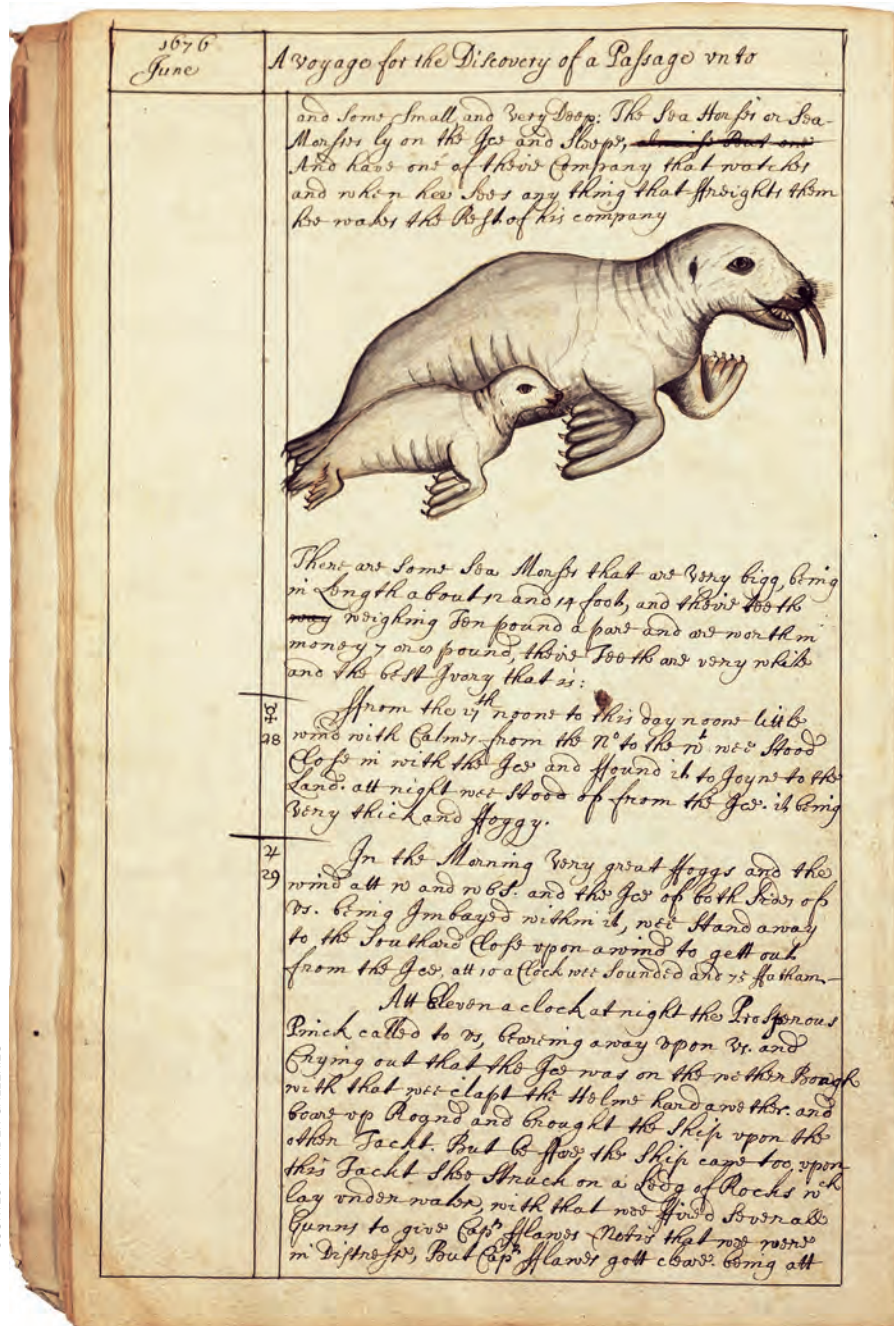 1676
June
A Voyage for the Discovery of a Passage vnto
and some small, and Very Deep: The Sea Horses or Sea-
Morses ly on the Ice and Sleepe,
And have one of theire Company that watches
and when hee Sees any thing that ffreights them
hee wakes the Rest of his company
There are some Sea Morses that are Very bigg, being
in Length about 12 and 14 foot, and theire teeth
way weighing Ten pound a pare and are worth in
money 7 or pound, theire Teeth are very white
and the best Ivory that is:
☿
28
ffrom the 27th noone to this day noone little
wind with Calmes from the No to the wt wee Stood
Close in with the Ice and ffound it to Joyne to the
Land. att night wee Stood of from the Ice. it being
Very thick and ffoggy.
♃
29
In the Morning Very great ffoggs and the
wind att w and wbS. and the Ice of both Sides of
vs. being Imbayed within it, wee Stand away
to the Southard Close vpon a wind to gett out
from the Ice, att 10 a Clock wee Sounded and 75 ffatham.
Att Eleven a clock at night the Prosperous
Pinck called to vs, beareing away vpon Vs. and
Crying out that the Ice was on the wether Bough
with that wee clapt the Helme hard a wether. and
boare vp Rognd and brought the Ship vpon the
other Tackt. But be ffore the Ship came too, vpon
this Tackt Shee Struck on a Ledg of Rocks wch
lay vnder water, with that wee ffired Severall
Gunns to give Capn fflawes Notis that wee were
in Distresse, But Capn fflawes gott cleare. being att